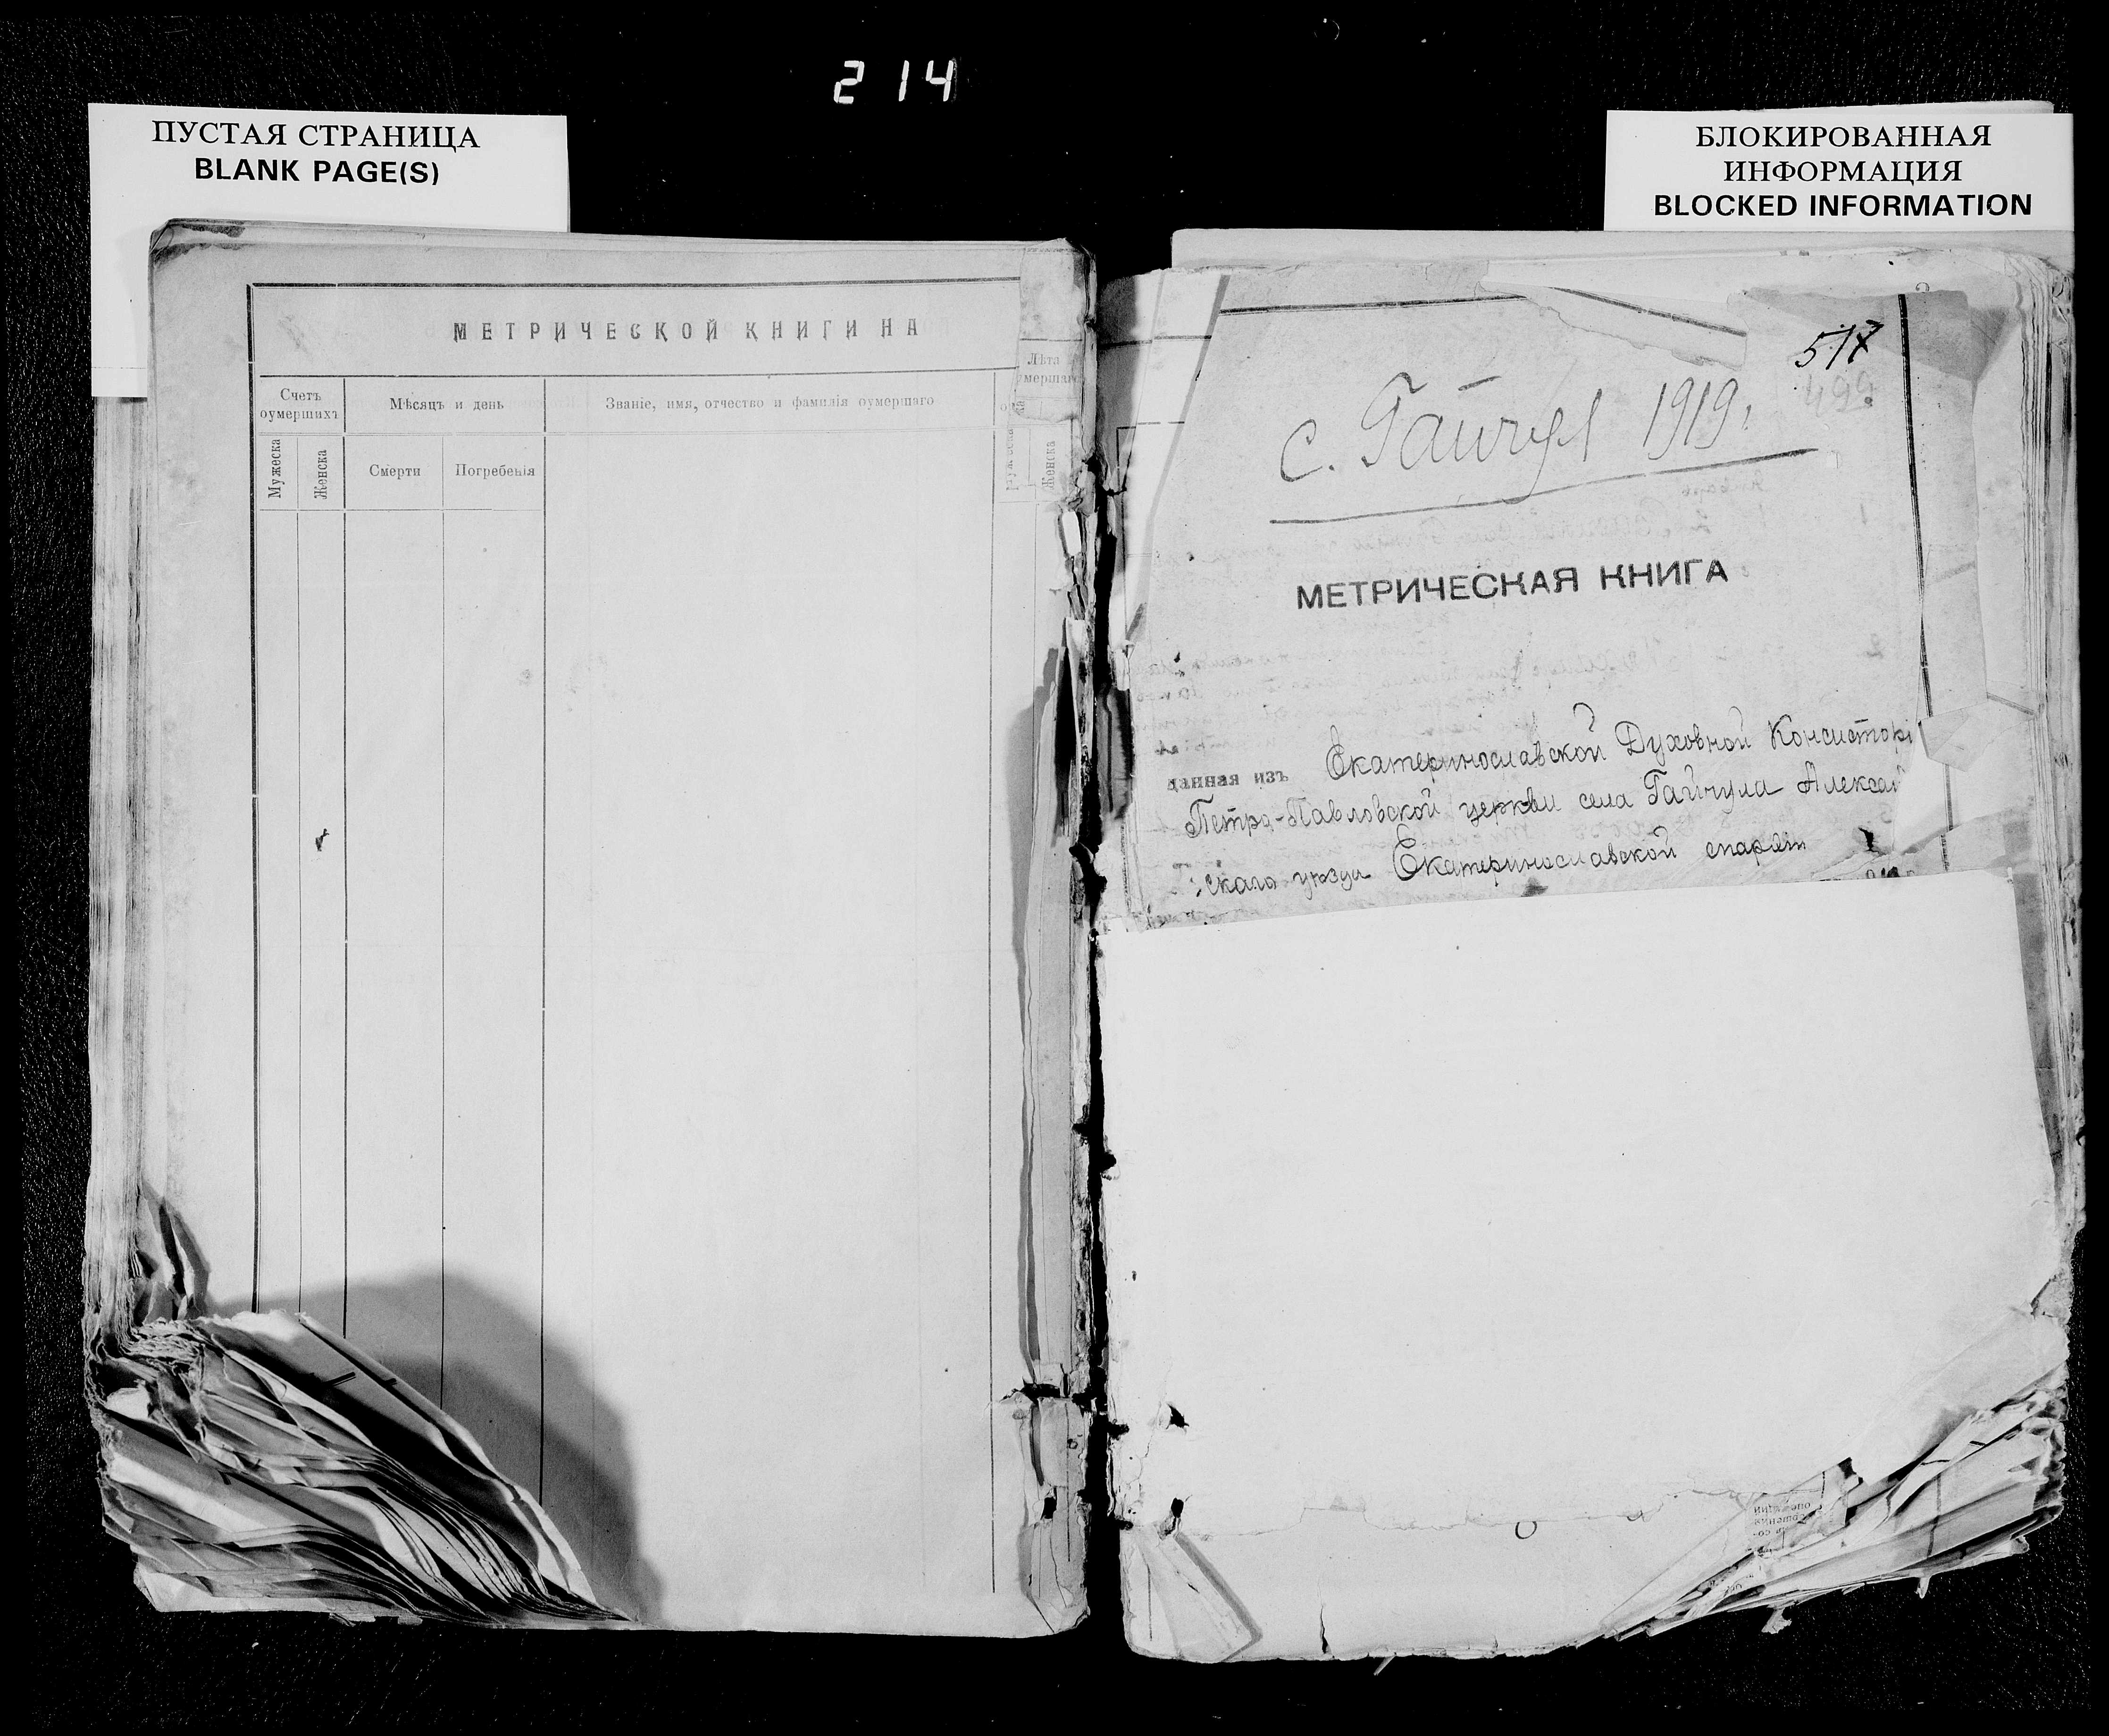 214
ПУСТАЯ СТРАНИЦА
BLANK PAGE(S)
МЕТРИЧЕСКОЙ КНИГИ НА
Счетъ оумершихъ
Мѣсяцъ и день
Званіе, имя, отчество и фамилія оумершаго
Лѣта
Мужеска
Женска
Смерти
Погребенія
Женска
БЛОКИРОВАННАЯ
ИНФОРМАЦИЯ
BLOCKED INFORMATION
517
499
с. Гайчул 1919.
МЕТРИЧЕСКАЯ КНИГА
данная изъ Екатеринославской Духовной Консисторі
Петро-Павловской церкви села Гайчула Алексан
скаго уѣзда Екатеринославской епархіи